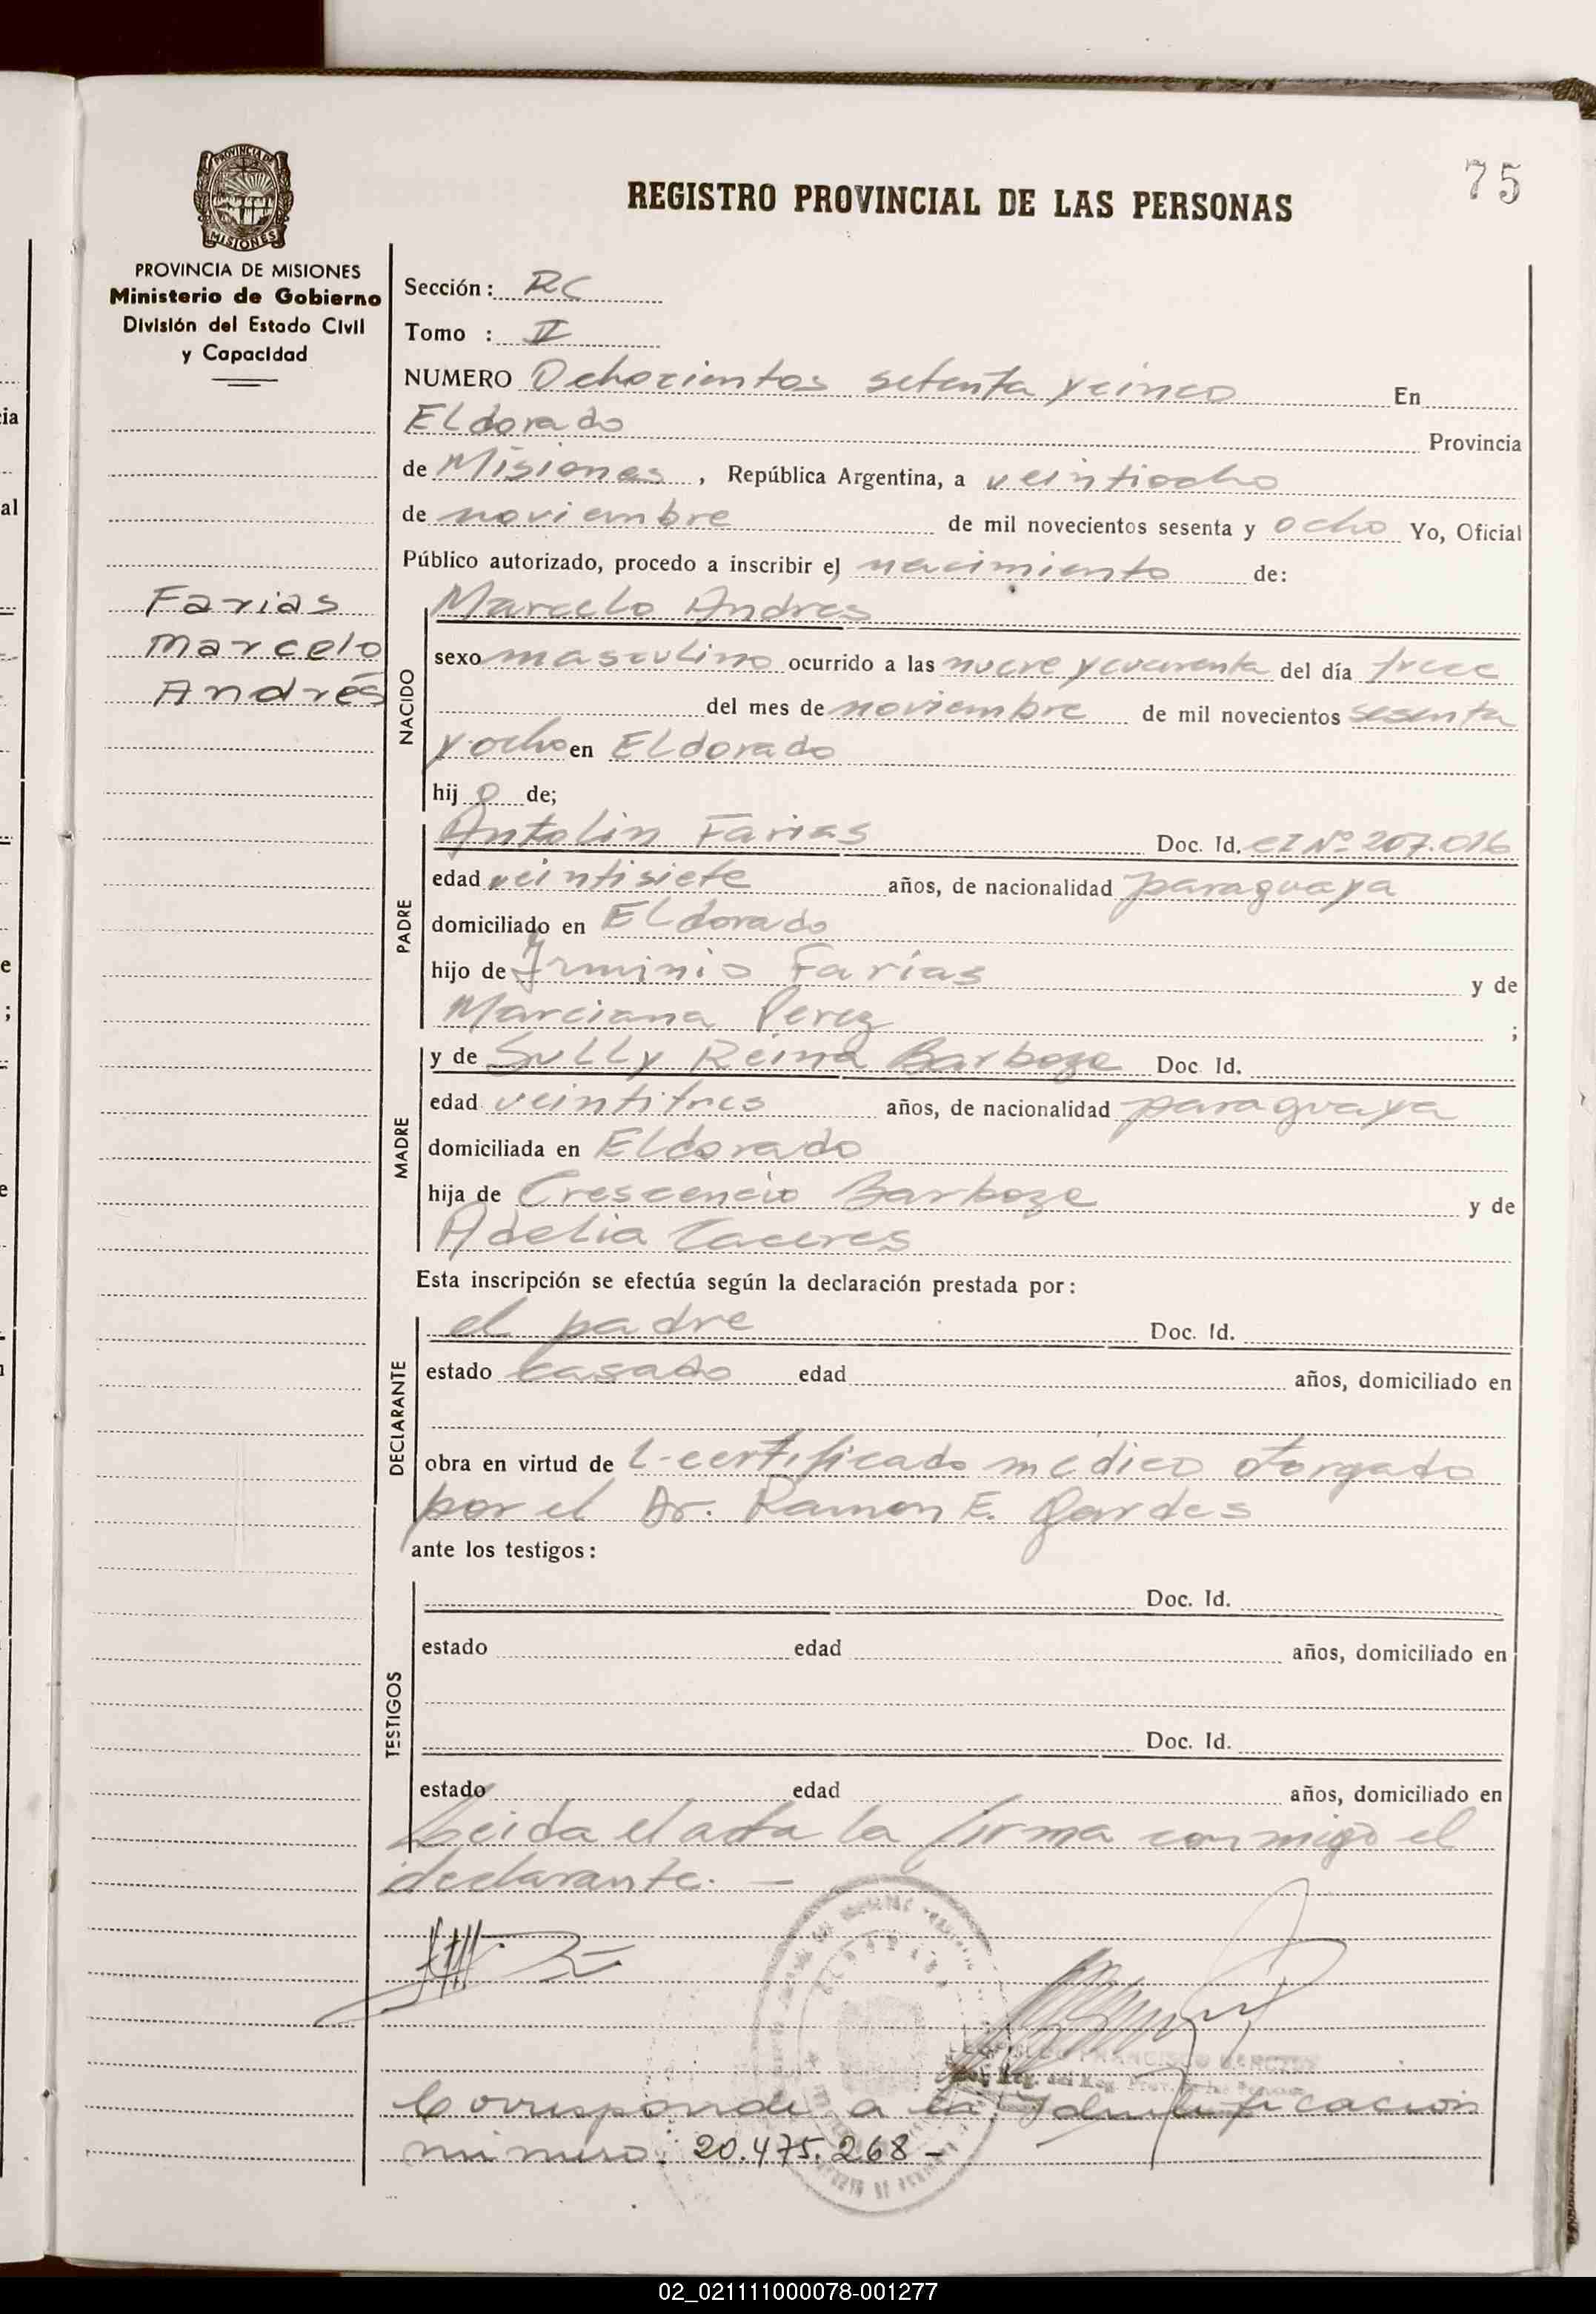 75
PROVINCIA DE MISIONES
REGISTRO PROVINCIAL DE LAS PERSONAS
PROVINCIA DE MISIONES
Ministerio de Gobierno
División del Estado Civil
y Capacidad
Farias
Marcelo
Andrés
Sección: RC
Tomo : II
NUMERO Ochocientos setenta y cinco En
Eldorado Provincia
de Misiones, República Argentina, a veintiocho
de noviembre de mil novecientos sesenta y ocho Yo, Oficial
Público autorizado, procedo a inscribir el nacimiento de:
NACIDO
Marcelo Andres
sexo masculino ocurrido a las nueve y cuarenta del día trece
del mes de noviembre de mil novecientos sesenta
y ocho en Eldorado
hijo de;
PADRE
Antolin Farias Doc. Id. CI Nº 207.016
edad veintisiete años, de nacionalidad paraguaya
domiciliado en Eldorado
hijo de Irminio Farías y de
Marciana Perez ;
MADRE
y de Sully Reina Barboza Doc. Id.
edad veintitres años, de nacionalidad paraguaya
domiciliada en Eldorado
hija de Crescencio Barboza y de
Adelia Caceres
Esta inscripción se efectúa según la declaración prestada por:
DECLARANTE
el padre Doc. Id.
estado casado edad años, domiciliado en
obra en virtud de l-certificado medico otorgado
por el Dr. Ramon E. Gardes
ante los testigos:
TESTIGOS
Doc. Id.
estado edad años, domiciliado en
Doc. Id.
estado edad años, domiciliado en
Leida el acta la firma conmigo el
declarante. —
FRANCISCO
Corresponde a la Identificación
número: 20.475.268-
02_021111000078-001277